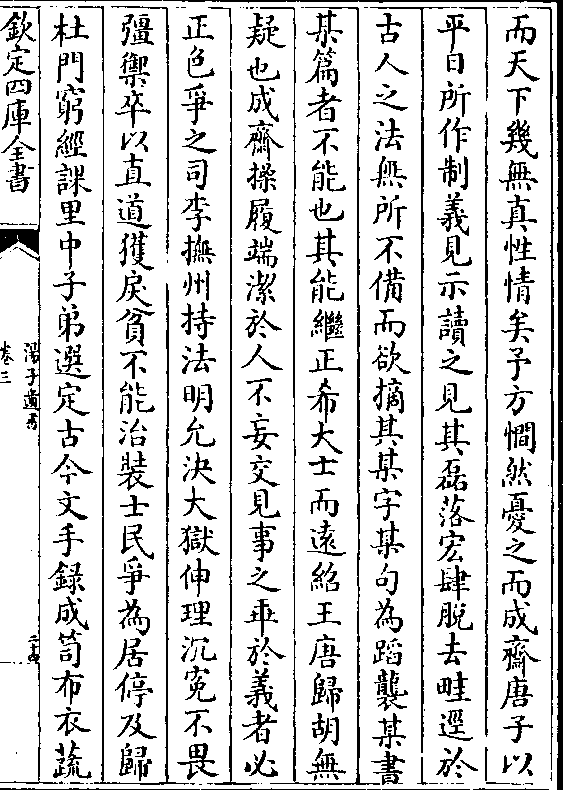 而天下幾無真性情矣予方憪然憂之而成齋唐子以
平日所作制義見示讀之見其磊落宏肆脫去畦逕於
古人之法無所不備而欲摘其某字某句為蹈襲某書
某篇者不能也其能繼正希大士而遠紹王唐歸胡無
疑也成齋操履端潔於人不妄交見事之乖於義者必
正色爭之司李撫州持法明允決大獄伸理沉冤不畏
彊禦卒以直道獲戾貧不能治裝士民爭為居停及歸
杜門窮經課里中子弟選定古今文手錄成笥布衣蔬
欽定四庫全書
湯子遺書
卷三
二十四